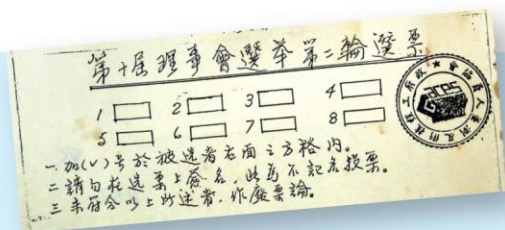 第十届理事會選举第二輪選票
1 2 3 4
5 6 7 8
一.加(√)号於被选者右面之方格内。
二.請勿在选票上簽名，此為不記名投票。
三.未符合以上所述者，作廢票論。